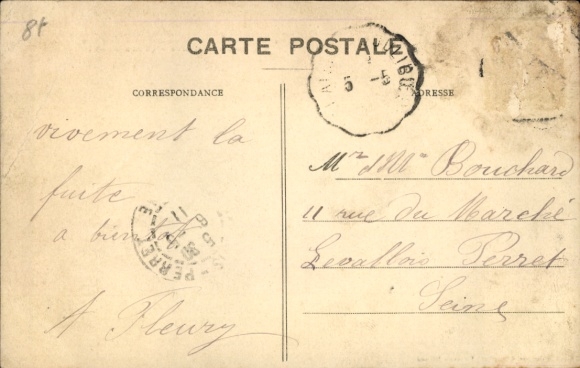 8f
CARTE POSTALE
CORRESPONDANCE
ADRESSE
5 -5
vivement la
fuite
a bientot
A Fleury
Mr et Mme Bouchard
11 rue du Marché
Levallois Perret
Seine